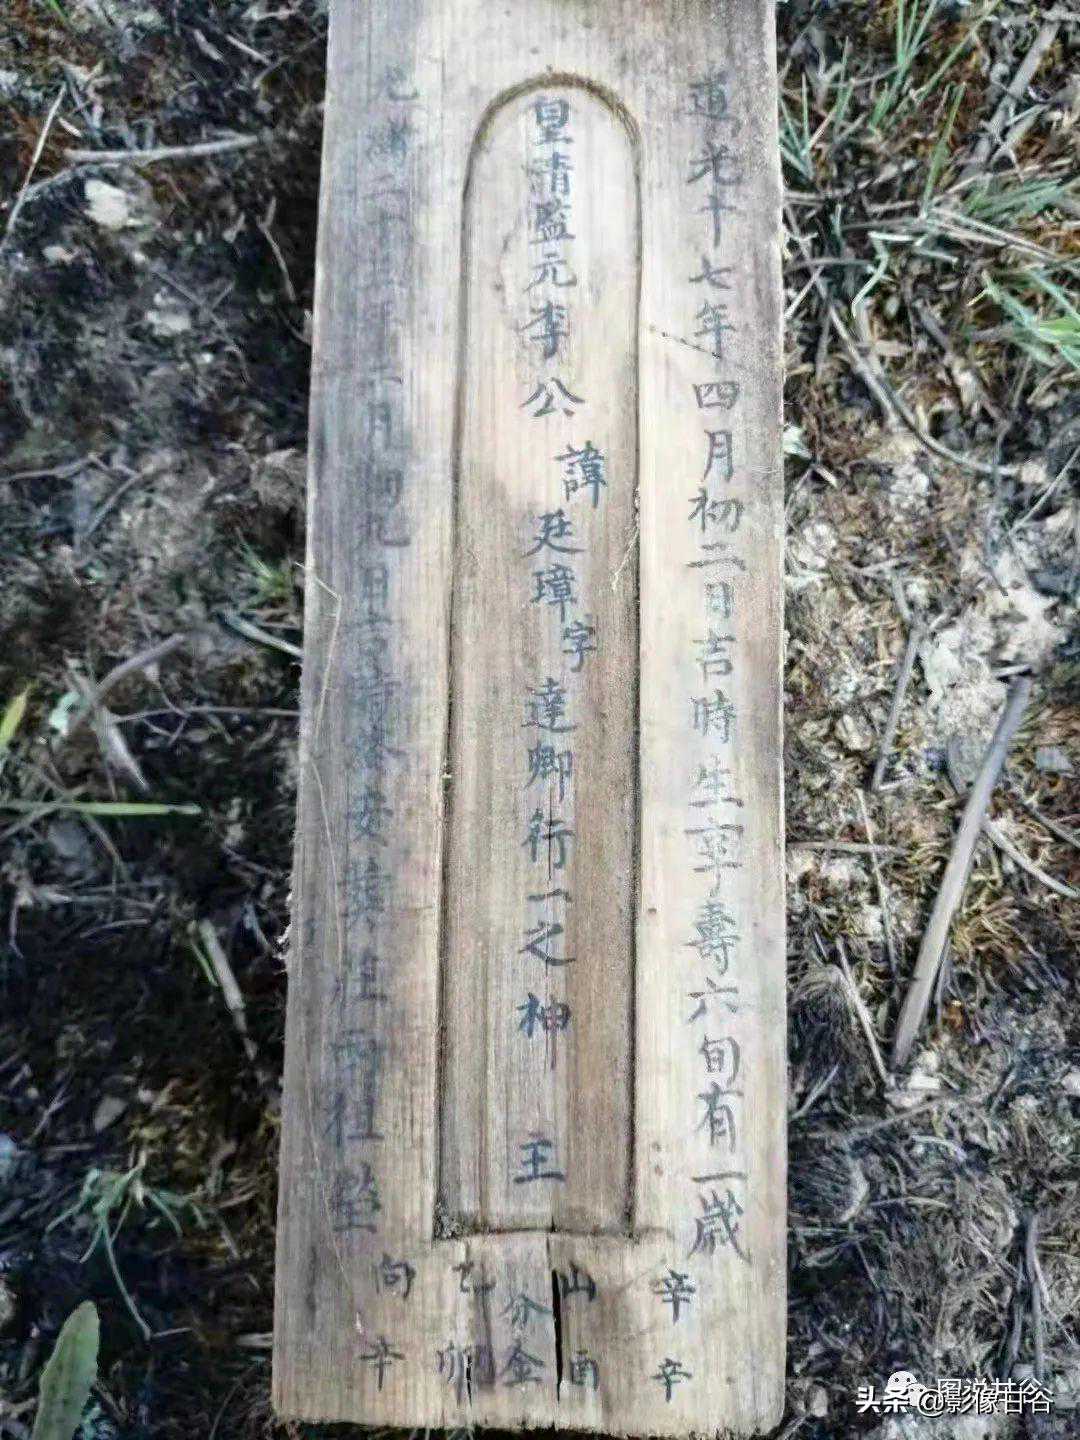 道光十七年四月初二日吉時生享壽六旬有一歲
皇清監元李公諱廷璋字達卿行一之神主
光緒二十三年二月初九日吉時安葬祖塋
辛山乙向
辛酉辛卯分金
图说甘谷
头条@影像甘谷